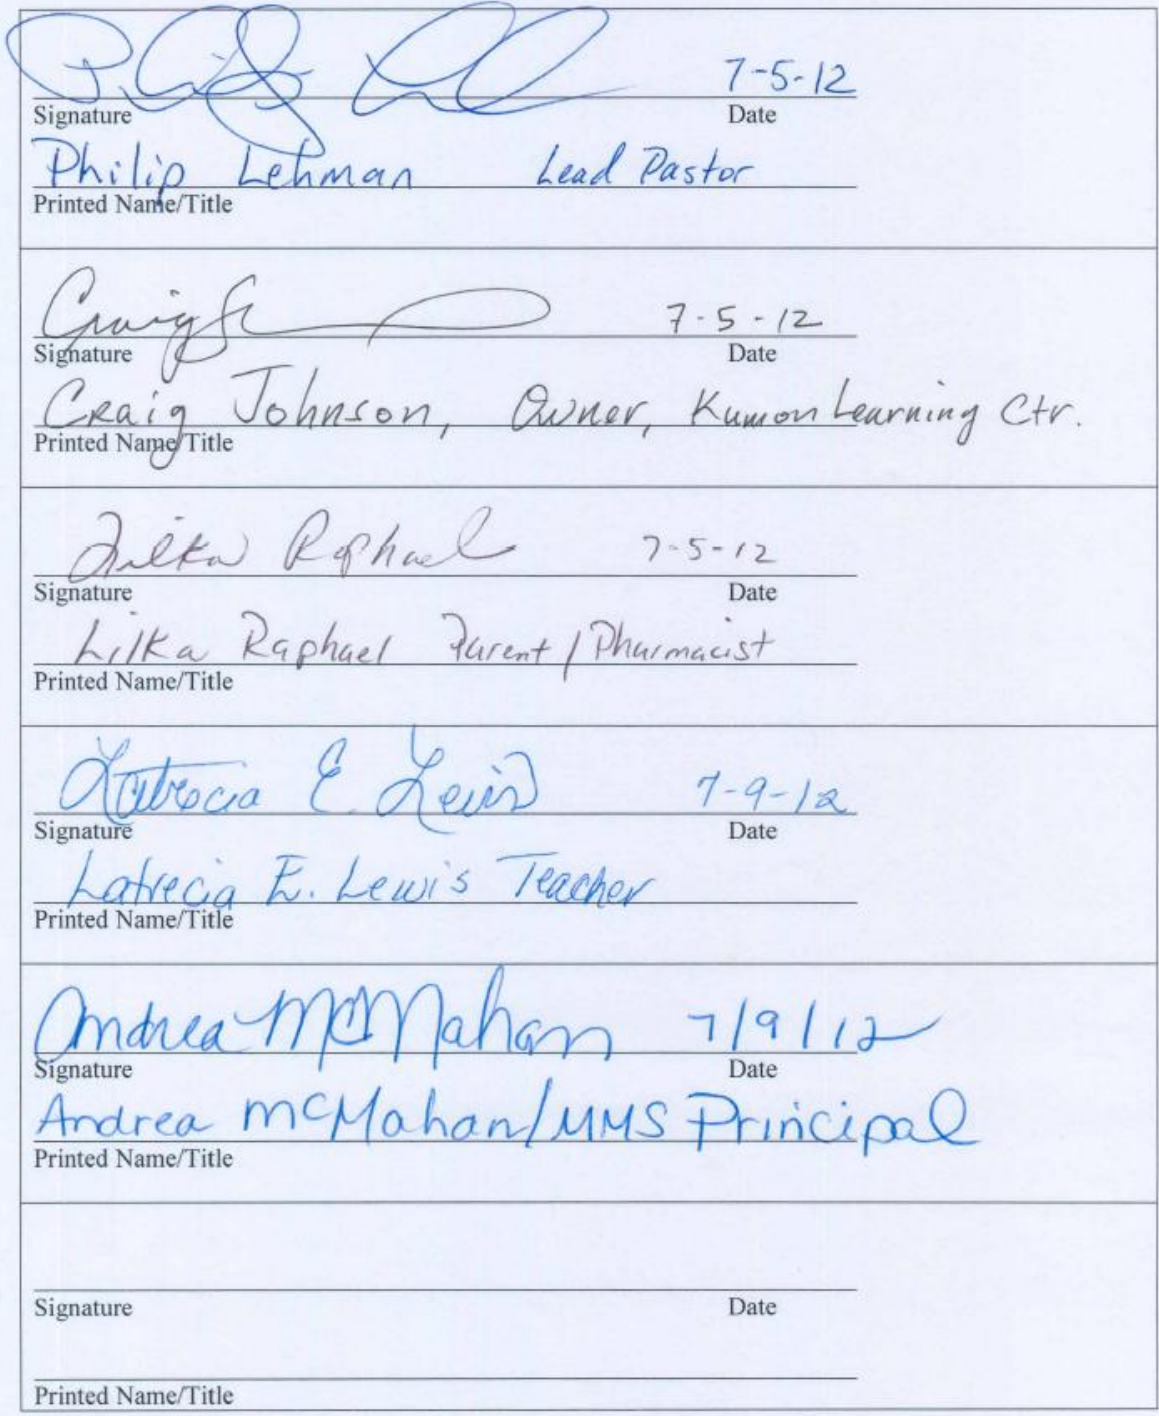 Philip Lehman 7-5-12
Signature Date
Philip Lehman Lead Pastor
Printed Name/Title
Craig 7-5-12
Signature Date
Craig Johnson, Owner, Kumon Learning Ctr.
Printed Name/Title
Lilka Raphael 7-5-12
Signature Date
Lilka Raphael Parent/Pharmacist
Printed Name/Title
Latrecia E. Lewis 7-9-12
Signature Date
Latrecia E. Lewis Teacher
Printed Name/Title
Andrea McMahan 7/9/12
Signature Date
Andrea McMahan/MMS Principal
Printed Name/Title
Signature Date
Printed Name/Title